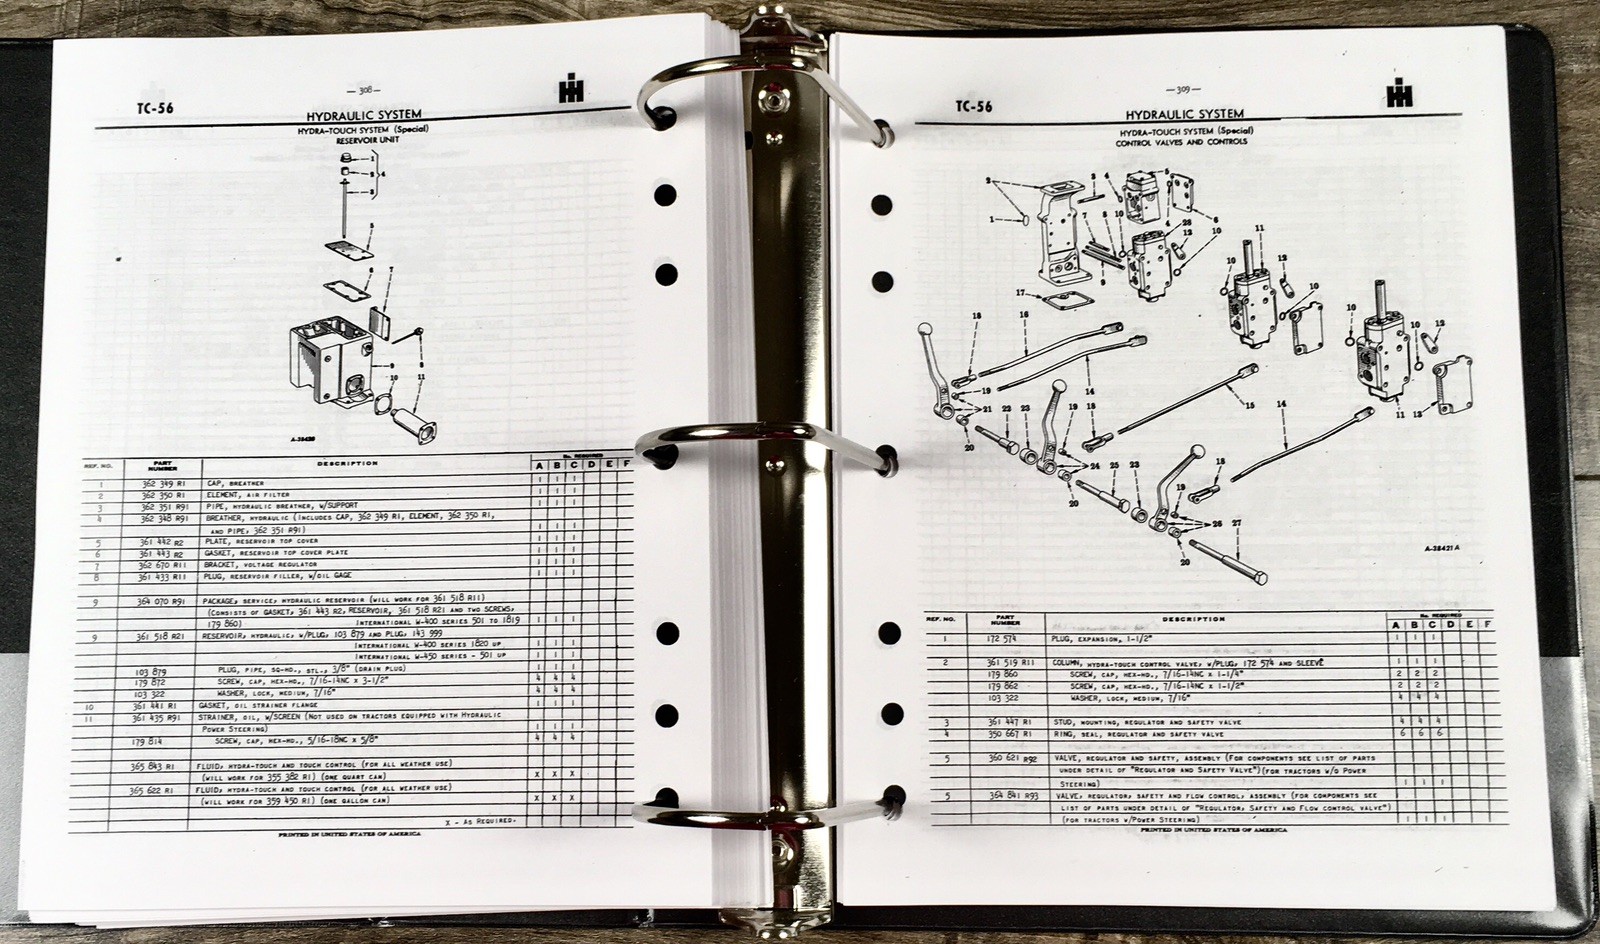 — 308 —
TC-56
IH
HYDRAULIC SYSTEM
HYDRA-TOUCH SYSTEM (Special)
RESERVOIR UNIT
1
2
4
3
5
6
7
9
8
10
11
A-38420
REF. NO.
PART NUMBER
DESCRIPTION
No. REQUIRED
A B C D E F
1 362 349 R1 CAP, BREATHER 1 1 1
2 362 350 R1 ELEMENT, AIR FILTER 1 1 1
3 362 351 R91 PIPE, HYDRAULIC BREATHER, W/SUPPORT 1 1 1
4 362 348 R91 BREATHER, HYDRAULIC (INCLUDES CAP, 362 349 R1, ELEMENT, 362 350 R1,
AND PIPE, 362 351 R91) 1 1 1
5 361 442 R2 PLATE, RESERVOIR TOP COVER 1 1 1
6 361 443 R2 GASKET, RESERVOIR TOP COVER PLATE 1 1 1
7 362 670 R11 BRACKET, VOLTAGE REGULATOR 1 1 1
8 361 433 R11 PLUG, RESERVOIR FILLER, W/OIL GAGE 1 1 1
9 364 070 R91 PACKAGE, SERVICE, HYDRAULIC RESERVOIR (WILL WORK FOR 361 518 R11)
(CONSISTS OF GASKET, 361 443 R2, RESERVOIR, 361 518 R21 AND TWO SCREWS,
179 860) INTERNATIONAL W-400 SERIES 501 TO 1819 1 1 1
9 361 518 R21 RESERVOIR, HYDRAULIC, W/PLUG, 103 879 AND PLUG, 143 999
INTERNATIONAL W-400 SERIES 1820 UP 1 1 1
INTERNATIONAL W-450 SERIES - 501 UP 1 1 1
103 879 PLUG, PIPE, SQ-HD., STL., 3/8" (DRAIN PLUG) 1 1 1
179 872 SCREW, CAP, HEX-HD., 7/16-14NC x 3-1/2" 4 4 4
103 322 WASHER, LOCK, MEDIUM, 7/16" 4 4 4
10 361 441 R1 GASKET, OIL STRAINER FLANGE 1 1 1
11 361 435 R91 STRAINER, OIL, W/SCREEN (NOT USED ON TRACTORS EQUIPPED WITH HYDRAULIC
POWER STEERING) 1 1 1
179 814 SCREW, CAP, HEX-HD., 5/16-18NC x 5/8" 4 4 4
365 843 R1 FLUID, HYDRA-TOUCH AND TOUCH CONTROL (FOR ALL WEATHER USE)
(WILL WORK FOR 355 382 R1) (ONE QUART CAN) X X X
365 622 R1 FLUID, HYDRA-TOUCH AND TOUCH CONTROL (FOR ALL WEATHER USE)
(WILL WORK FOR 359 450 R1) (ONE GALLON CAN) X X X
X - AS REQUIRED.
PRINTED IN UNITED STATES OF AMERICA
— 309 —
TC-56
IH
HYDRAULIC SYSTEM
HYDRA-TOUCH SYSTEM (Special)
CONTROL VALVES AND CONTROLS
2 3 4 5
1 7 8 10 4 28 12 10 6
9 11
10 12
17 10
18 16 10 10 12
19 14
21 22 23 19 18 15 14 11 13
20
24 25 23 18
20 19
26 27
20
A-38421A
REF. NO.
PART NUMBER
DESCRIPTION
No. REQUIRED
A B C D E F
1 172 574 PLUG, EXPANSION, 1-1/2" 1 1 1
2 361 519 R11 COLUMN, HYDRA-TOUCH CONTROL VALVE, W/PLUG, 172 574 AND SLEEVE 1 1 1
179 860 SCREW, CAP, HEX-HD., 7/16-14NC x 1-1/4" 2 2 2
179 862 SCREW, CAP, HEX-HD., 7/16-14NC x 1-1/2" 2 2 2
103 322 WASHER, LOCK, MEDIUM, 7/16" 4 4 4
3 361 447 R1 STUD, MOUNTING, REGULATOR AND SAFETY VALVE 4 4 4
4 350 667 R1 RING, SEAL, REGULATOR AND SAFETY VALVE 6 6 6
5 360 621 R92 VALVE, REGULATOR AND SAFETY, ASSEMBLY (FOR COMPONENTS SEE LIST OF PARTS
UNDER DETAIL OF "REGULATOR AND SAFETY VALVE") (FOR TRACTORS W/O POWER
STEERING) 1 1 1
5 364 841 R93 VALVE, REGULATOR, SAFETY AND FLOW CONTROL, ASSEMBLY (FOR COMPONENTS SEE
LIST OF PARTS UNDER DETAIL OF "REGULATOR, SAFETY AND FLOW CONTROL VALVE")
(FOR TRACTORS W/POWER STEERING) 1 1 1
PRINTED IN UNITED STATES OF AMERICA